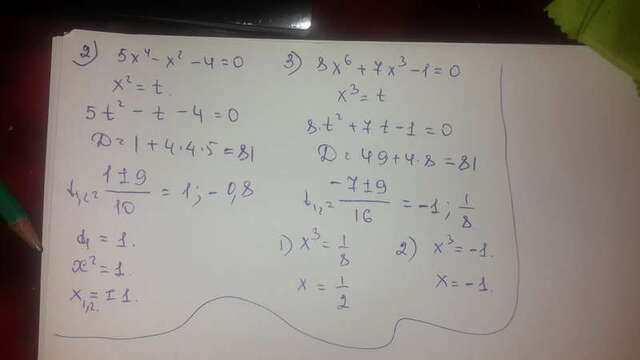 2) 5x⁴ - x² - 4 = 0
x² = t.
5t² - t - 4 = 0
D = 1 + 4·4·5 = 81
t₁,₂ = (1 ± 9)/10 = 1; -0,8
t₁ = 1.
x² = 1.
x₁,₂ = ± 1.
3) 8x⁶ + 7x³ - 1 = 0
x³ = t
8·t² + 7t - 1 = 0
D = 49 + 4·8 = 81
t₁,₂ = (-7 ± 9)/16 = -1; 1/8
1) x³ = 1/8
x = 1/2
2) x³ = -1.
x = -1.